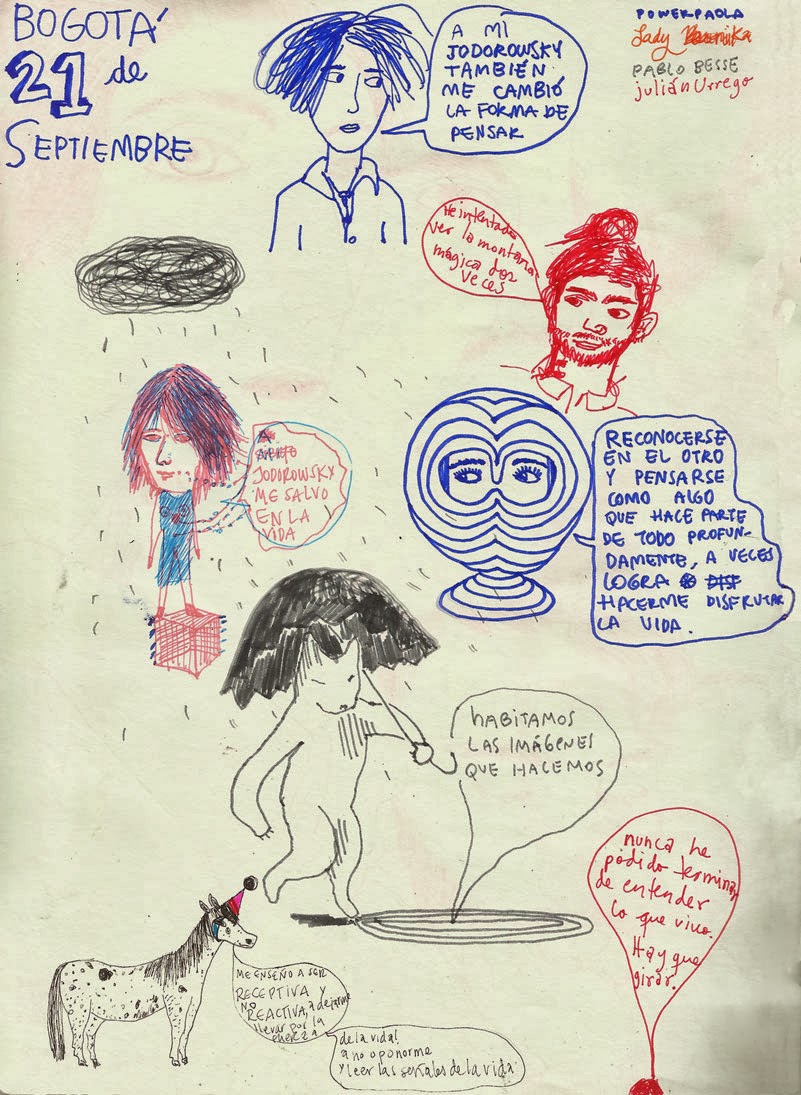 BOGOTÁ
21 de
SEPTIEMBRE
A MI
JODOROWSKY
TAMBIÉN
ME CAMBIÓ
LA FORMA DE
PENSAR
POWERPAOLA
Lady
PABLO BESSE
julián Urrego
He intentado
ver la montaña
mágica dos
veces
JODOROWSKY
ME SALVO
EN LA
VIDA
RECONOCERSE
EN EL OTRO
Y PENSARSE
COMO ALGO
QUE HACE PARTE
DE TODO PROFUN-
DAMENTE, A VECES
LOGRA
HACERME DISFRUTAR
LA VIDA.
HABITAMOS
LAS IMÁGENES
QUE HACEMOS
nunca he
podido terminar
de entender
lo que vivo.
Hay que
girar.
ME ENSEÑO A SER
RECEPTIVA Y
NO
REACTIVA, a dejarme
llevar por la
de la vida!
a no oponerme
y leer las señales de la vida